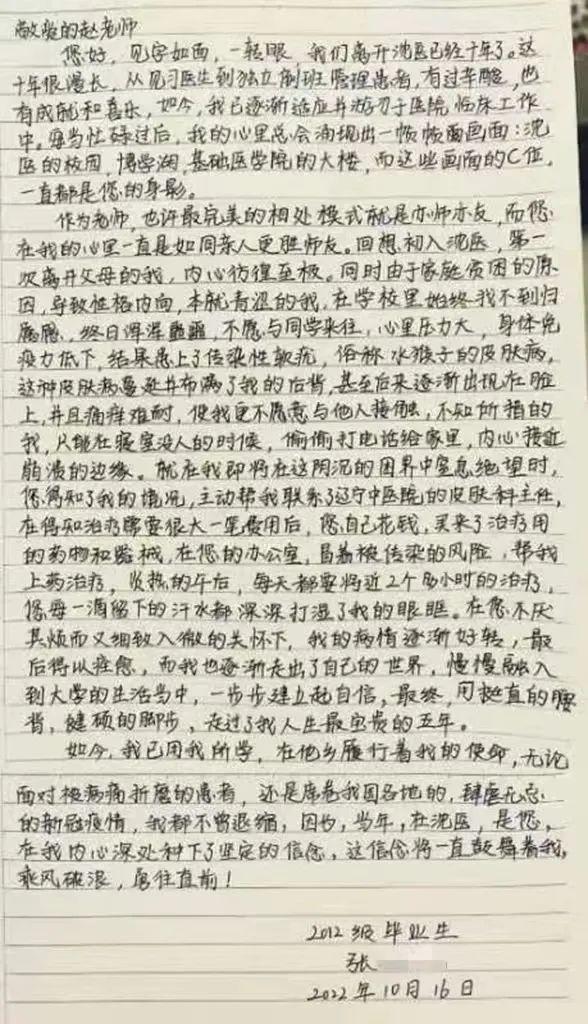 敬爱的赵老师
您好，见字如面，一转眼，我们离开沈医已经十年了。这
十年很漫长，从见习医生到独立制班管理患者，有过辛酸，也
有成就和喜乐，如今，我已逐渐适应并游刃于医院临床工作
中。每当忙碌过后，我的心里总会涌现出一帧帧画面：沈
医的校园，博学湖，基础医学院的大楼，而这些画面的C位，
一直都是您的身影。
作为老师，也许最完美的相处模式就是亦师亦友，而您
在我的心里一直是如同亲人更胜师友。回想初入沈医，第一
次离开父母的我，内心彷徨至极。同时由于家庭贫困的原
因，导致性格内向，本就青涩的我，在学校里始终找不到归
属感，终日浑浑噩噩，不愿与同学来往，心里压力大，身体免
疫力低下，结果患上了传染性软疣，俗称水猴子的皮肤病，
这种皮肤病蔓延并布满了我的后背，甚至后来逐渐出现在脸
上，并且痛痒难耐，使我更不愿意与他人接触，不知所措的
我，只能在寝室没人的时候，偷偷打电话给家里，内心接近
崩溃的边缘。就在我即将在这阴沉的困界中窒息绝望时，
您得知了我的情况，主动帮我联系了辽宁中医院的皮肤科主任，
在得知治疗需要很大一笔费用后，您自己花钱，买来了治疗用
的药物和器械，在您的办公室，冒着被传染的风险，帮我
上药治疗，炎热的午后，每天都要将近2个多小时的治疗，
您每一滴留下的汗水都深深打湿了我的眼眶。在您不厌
其烦而又细致入微的关怀下，我的病情逐渐好转，最
后得以痊愈，而我也逐渐走出了自己的世界，慢慢融入
到大学的生活当中，一步步建立起自信，最终，用挺直的腰
背，健硕的脚步，走过了我人生最宝贵的五年。
如今，我已用我所学，在他乡履行着我的使命，无论
面对被病痛折磨的患者，还是席卷我国各地的，肆虐无忌
的新冠疫情，我都不曾退缩，因为，当年，在沈医，是您，
在我内心深处种下了坚定的信念，这信念将一直鼓舞着我，
乘风破浪，勇往直前！
2012级毕业生
张
2022年10月16日